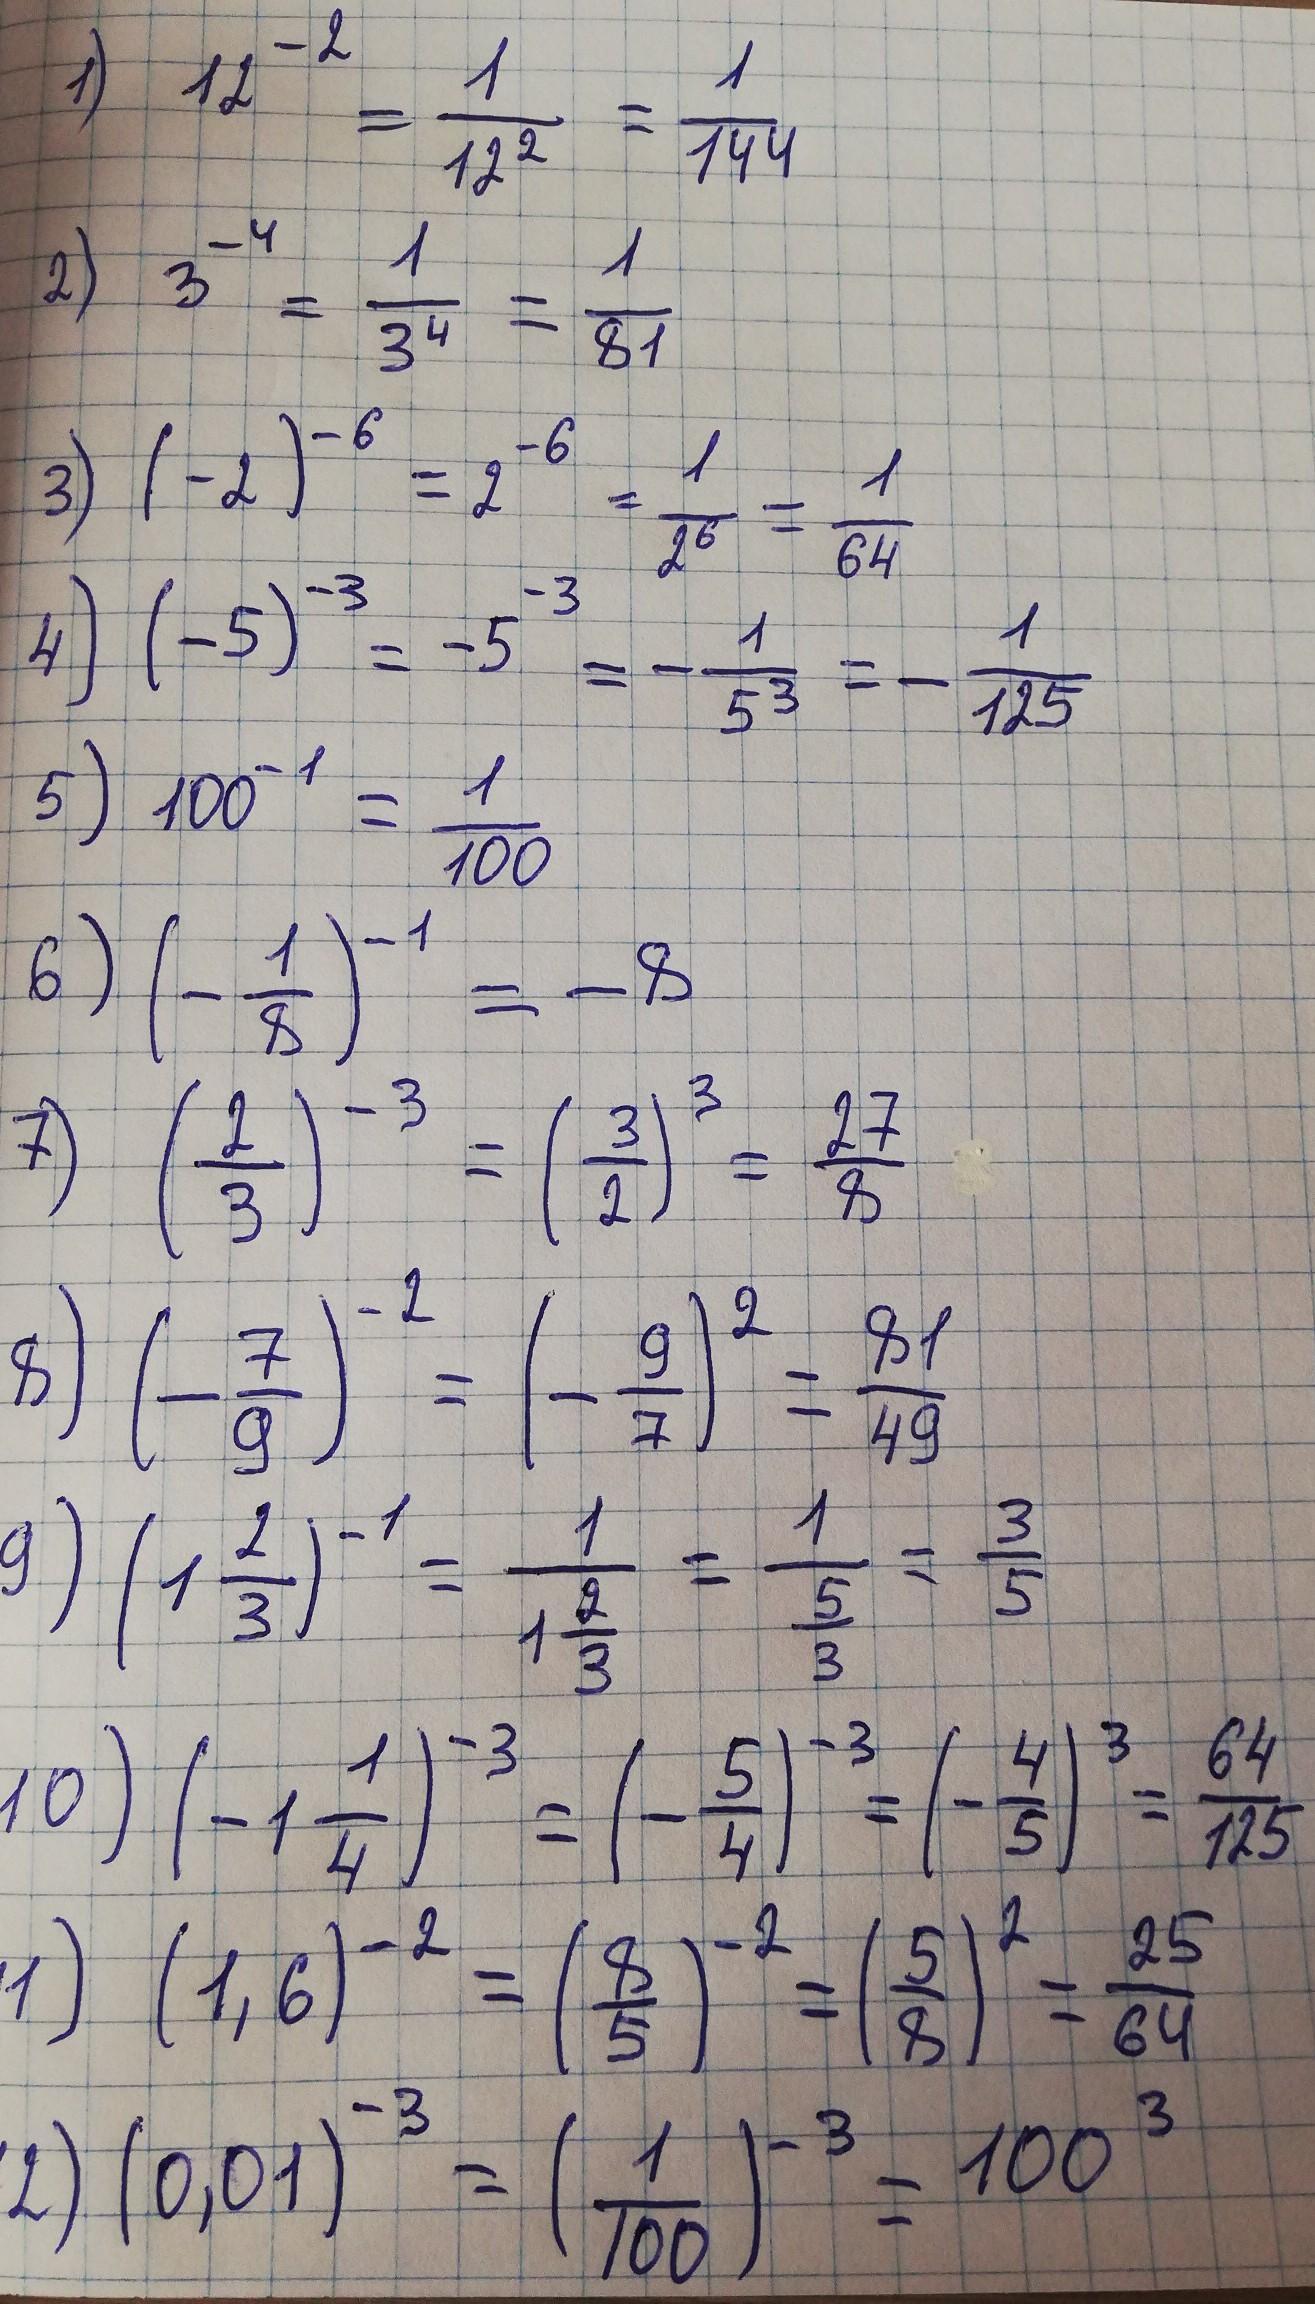 1) 12^{-2} = \frac{1}{12^2} = \frac{1}{144}
2) 3^{-4} = \frac{1}{3^4} = \frac{1}{81}
3) (-2)^{-6} = 2^{-6} = \frac{1}{2^6} = \frac{1}{64}
4) (-5)^{-3} = -5^{-3} = -\frac{1}{5^3} = -\frac{1}{125}
5) 100^{-1} = \frac{1}{100}
6) (-\frac{1}{8})^{-1} = -8
7) (\frac{2}{3})^{-3} = (\frac{3}{2})^3 = \frac{27}{8}
8) (-\frac{7}{9})^{-2} = (-\frac{9}{7})^2 = \frac{81}{49}
9) (1\frac{2}{3})^{-1} = \frac{1}{1\frac{2}{3}} = \frac{1}{\frac{5}{3}} = \frac{3}{5}
10) (-1\frac{1}{4})^{-3} = (-\frac{5}{4})^{-3} = (-\frac{4}{5})^3 = \frac{64}{125}
11) (1,6)^{-2} = (\frac{8}{5})^{-2} = (\frac{5}{8})^2 = \frac{25}{64}
2) (0,01)^{-3} = (\frac{1}{100})^{-3} = 100^3